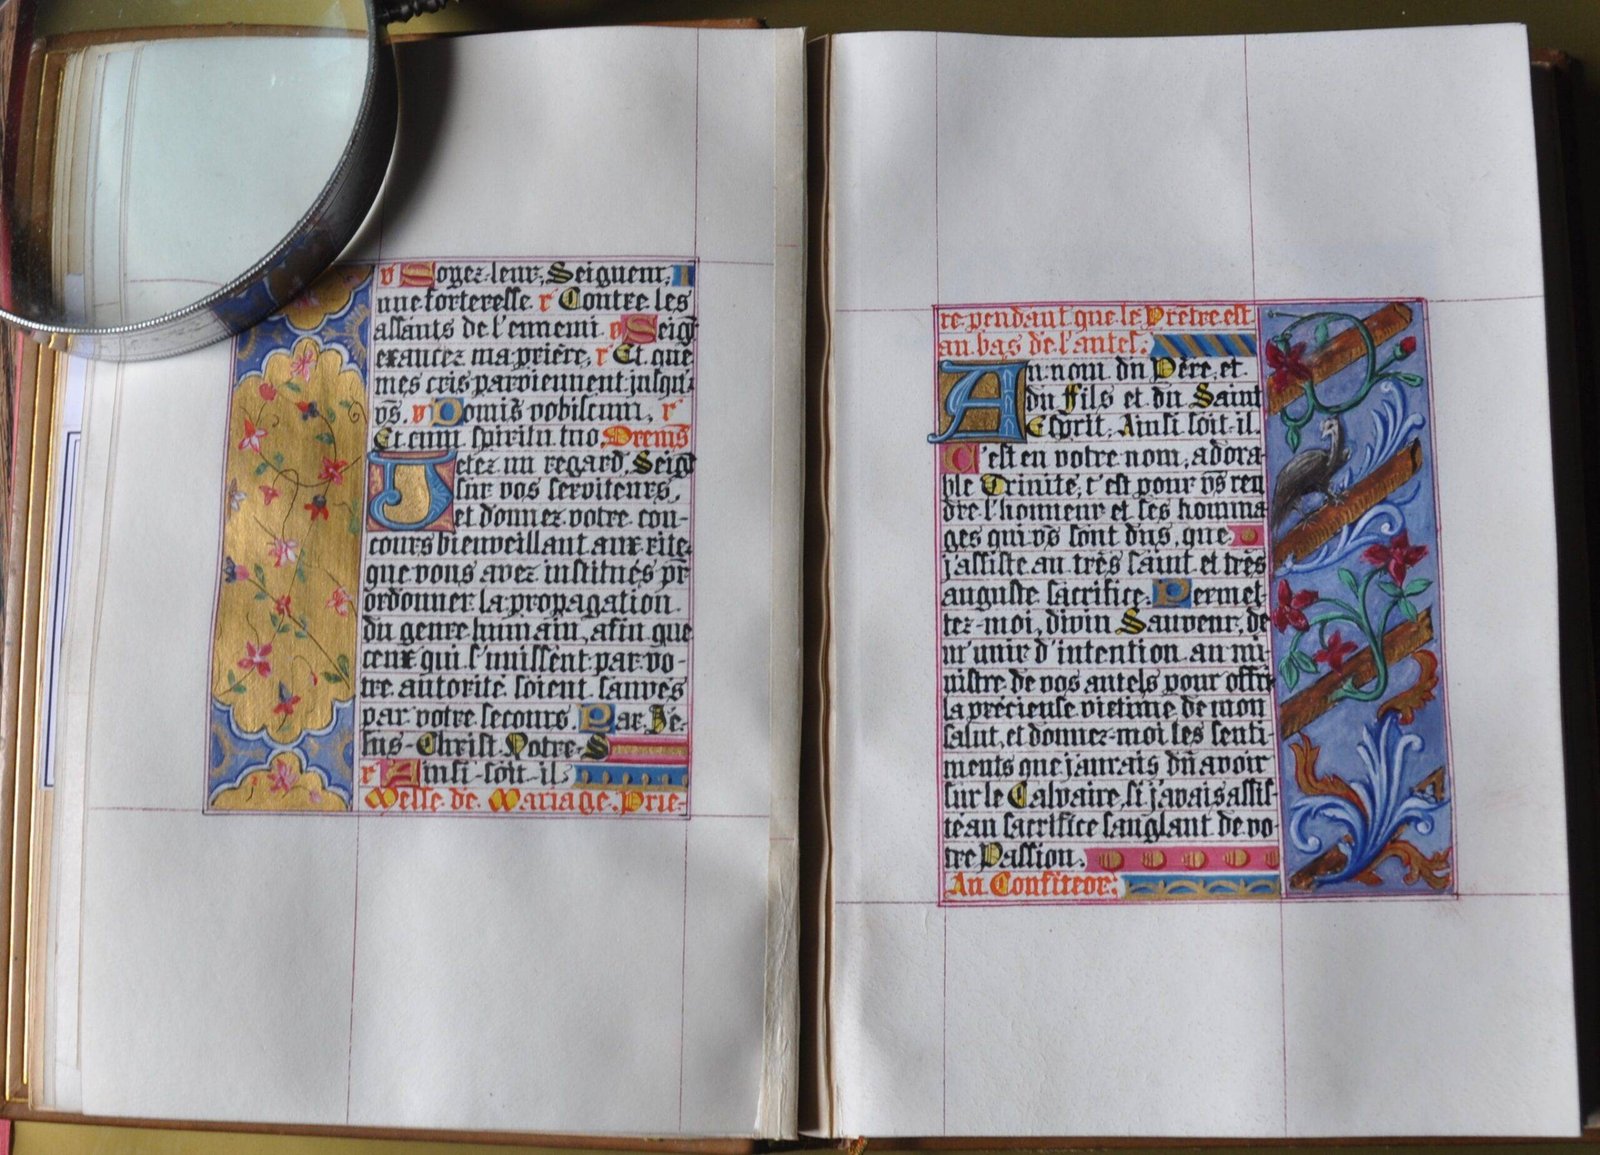 v Soyez-leur, Seigneur,
une forteresse. r Contre les
assauts de l'ennemi. v Seigr̃
exaucez ma prière, r Et que
mes cris parviennent jusqu'à
vs̃. v Domis̃ vobiscum. r
Et cum spiritu tuo. Oremus̃
Jetez un regard, Seigr̃
sur vos serviteurs,
et donnez votre con-
cours bienveillant aux rites
que vous avez institués pr̃
ordonner la propagation
du genre humain, afin que
ceux qui s'unissent par vo-
tre autorité soient sauvés
par votre secours. Par Jé-
sus-Christ Votre S
r Ainsi-soit-il.
Messe de Mariage. Priè-
re pendant que le Prêtre est
au bas de l'autel:
Au nom du Père, et
du Fils et du Saint
Esprit, Ainsi soit il.
C'est en votre nom, adora-
ble Trinité, c'est pour vs̃ ren
dre l'honneur et les homma
ges qui vs̃ sont dus, que
j'assiste au très saint et très
auguste sacrifice. Permet
tez-moi, divin Sauveur, de
m'unir d'intention au mi-
nistre de vos autels pour offrir
la précieuse victime de mon
salut, et donnez-moi les senti-
ments que j'aurais dû avoir
sur le Calvaire, si j'avais assis-
té au sacrifice sanglant de vo-
tre Passion.
Au Confiteor: